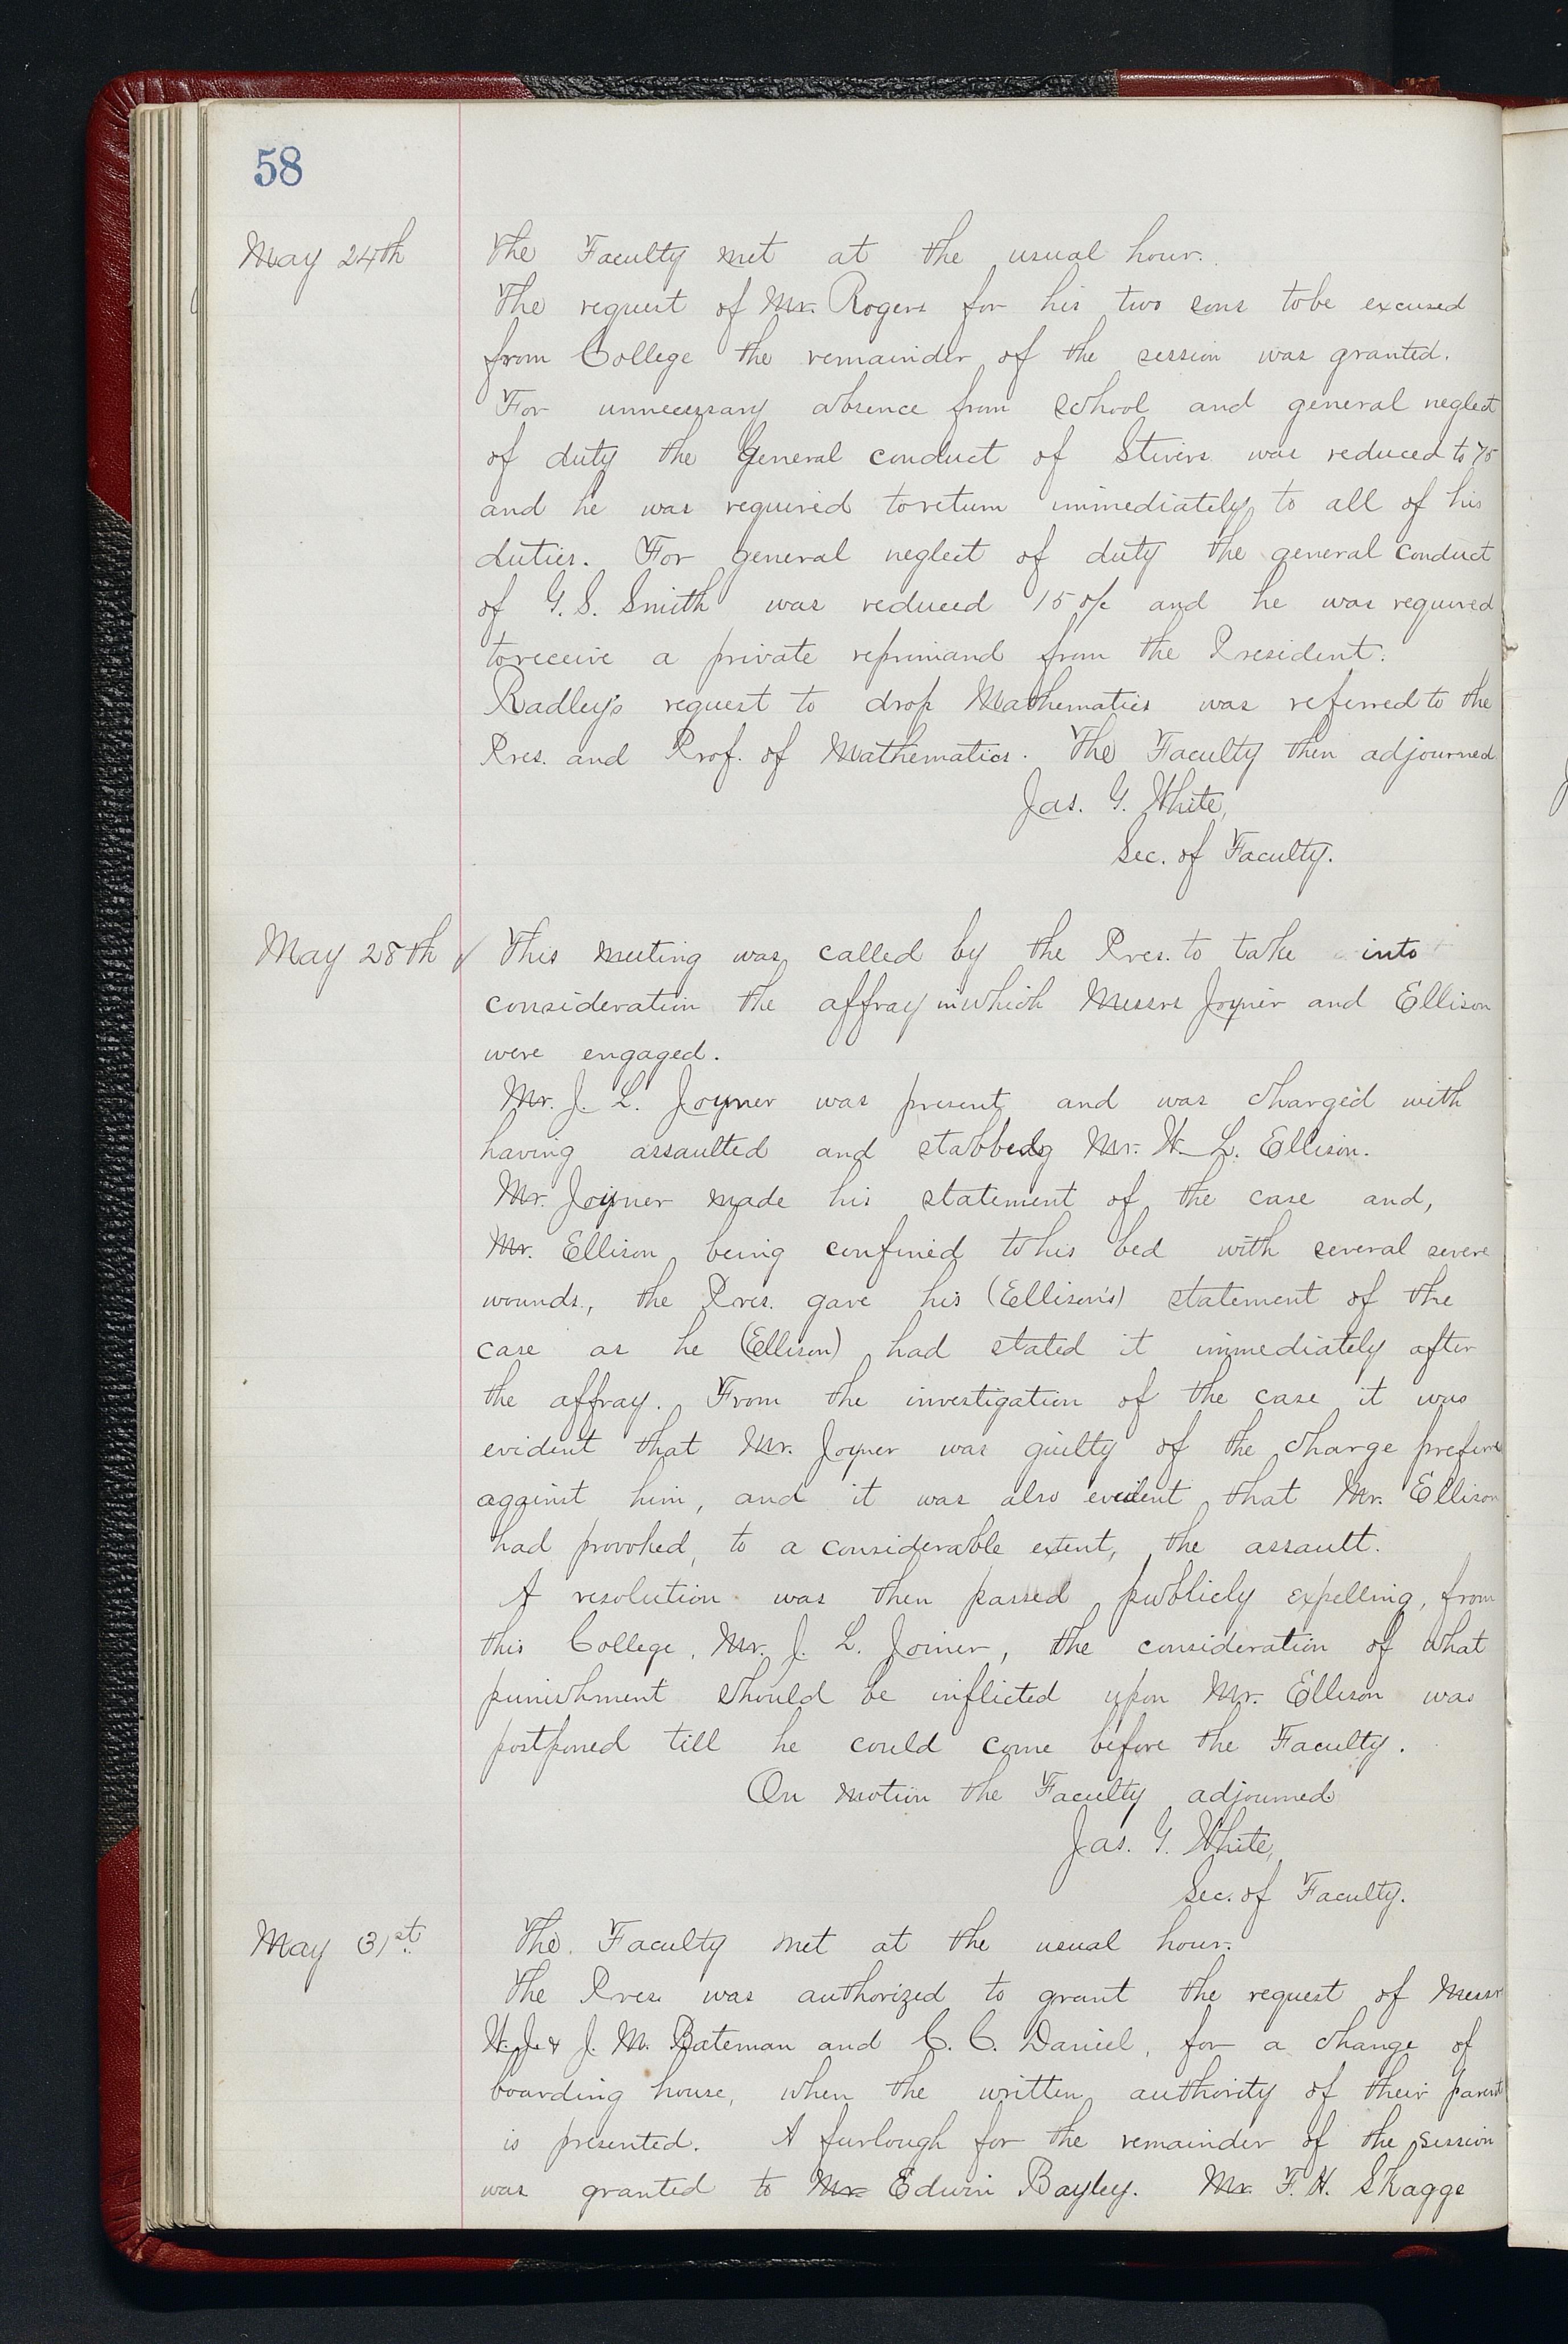 58
May 24th The Faculty met at the usual hour.
The request of Mr. Rogers for his two sons to be excused
from College the remainder of the session was granted.
For unnecessary absence from school and general neglect
of duty the general conduct of Stivers was reduced to 75
and he was required to return immediately to all of his
duties. For general neglect of duty the general conduct
of G. S. Smith was reduced 15 % and he was required
to receive a private reprimand from the President.
Radley's request to drop Mathematics was referred to the
Pres. and Prof. of Mathematics. The Faculty then adjourned
Jas. G. White,
Sec. of Faculty.
May 28th This meeting was called by the Pres. to take into
consideration the affray in which Messrs Joyner and Ellison
were engaged.
Mr. J. L. Joyner was present and was charged with
having assaulted and stabbed Mr. W. L. Ellison.
Mr. Joyner made his statement of the case and,
Mr. Ellison being confined to his bed with several severe
wounds, the Pres. gave his (Ellison's) statement of the
case as he (Ellison) had stated it immediately after
the affray. From the investigation of the case it was
evident that Mr. Joyner was guilty of the charge
against him, and it was also evident that Mr. Ellison
had provoked, to a considerable extent, the assault.
A resolution was then passed publicly expelling, from
this College, Mr. J. L. Joiner, the consideration of what
punishment should be inflicted upon Mr. Ellison was
postponed till he could come before the Faculty.
On motion the Faculty adjourned
Jas. G. White,
Sec. of Faculty.
May 31st The Faculty met at the usual hour.
The Pres. was authorized to grant the request of Messrs
& J. M. Bateman and C. C. Daniel, for a change of
boarding house, when the written authority of their parents
is presented. A furlough for the remainder of the session
was granted to Mr. Edwin Bayley. Mr. F. H. Skaggs